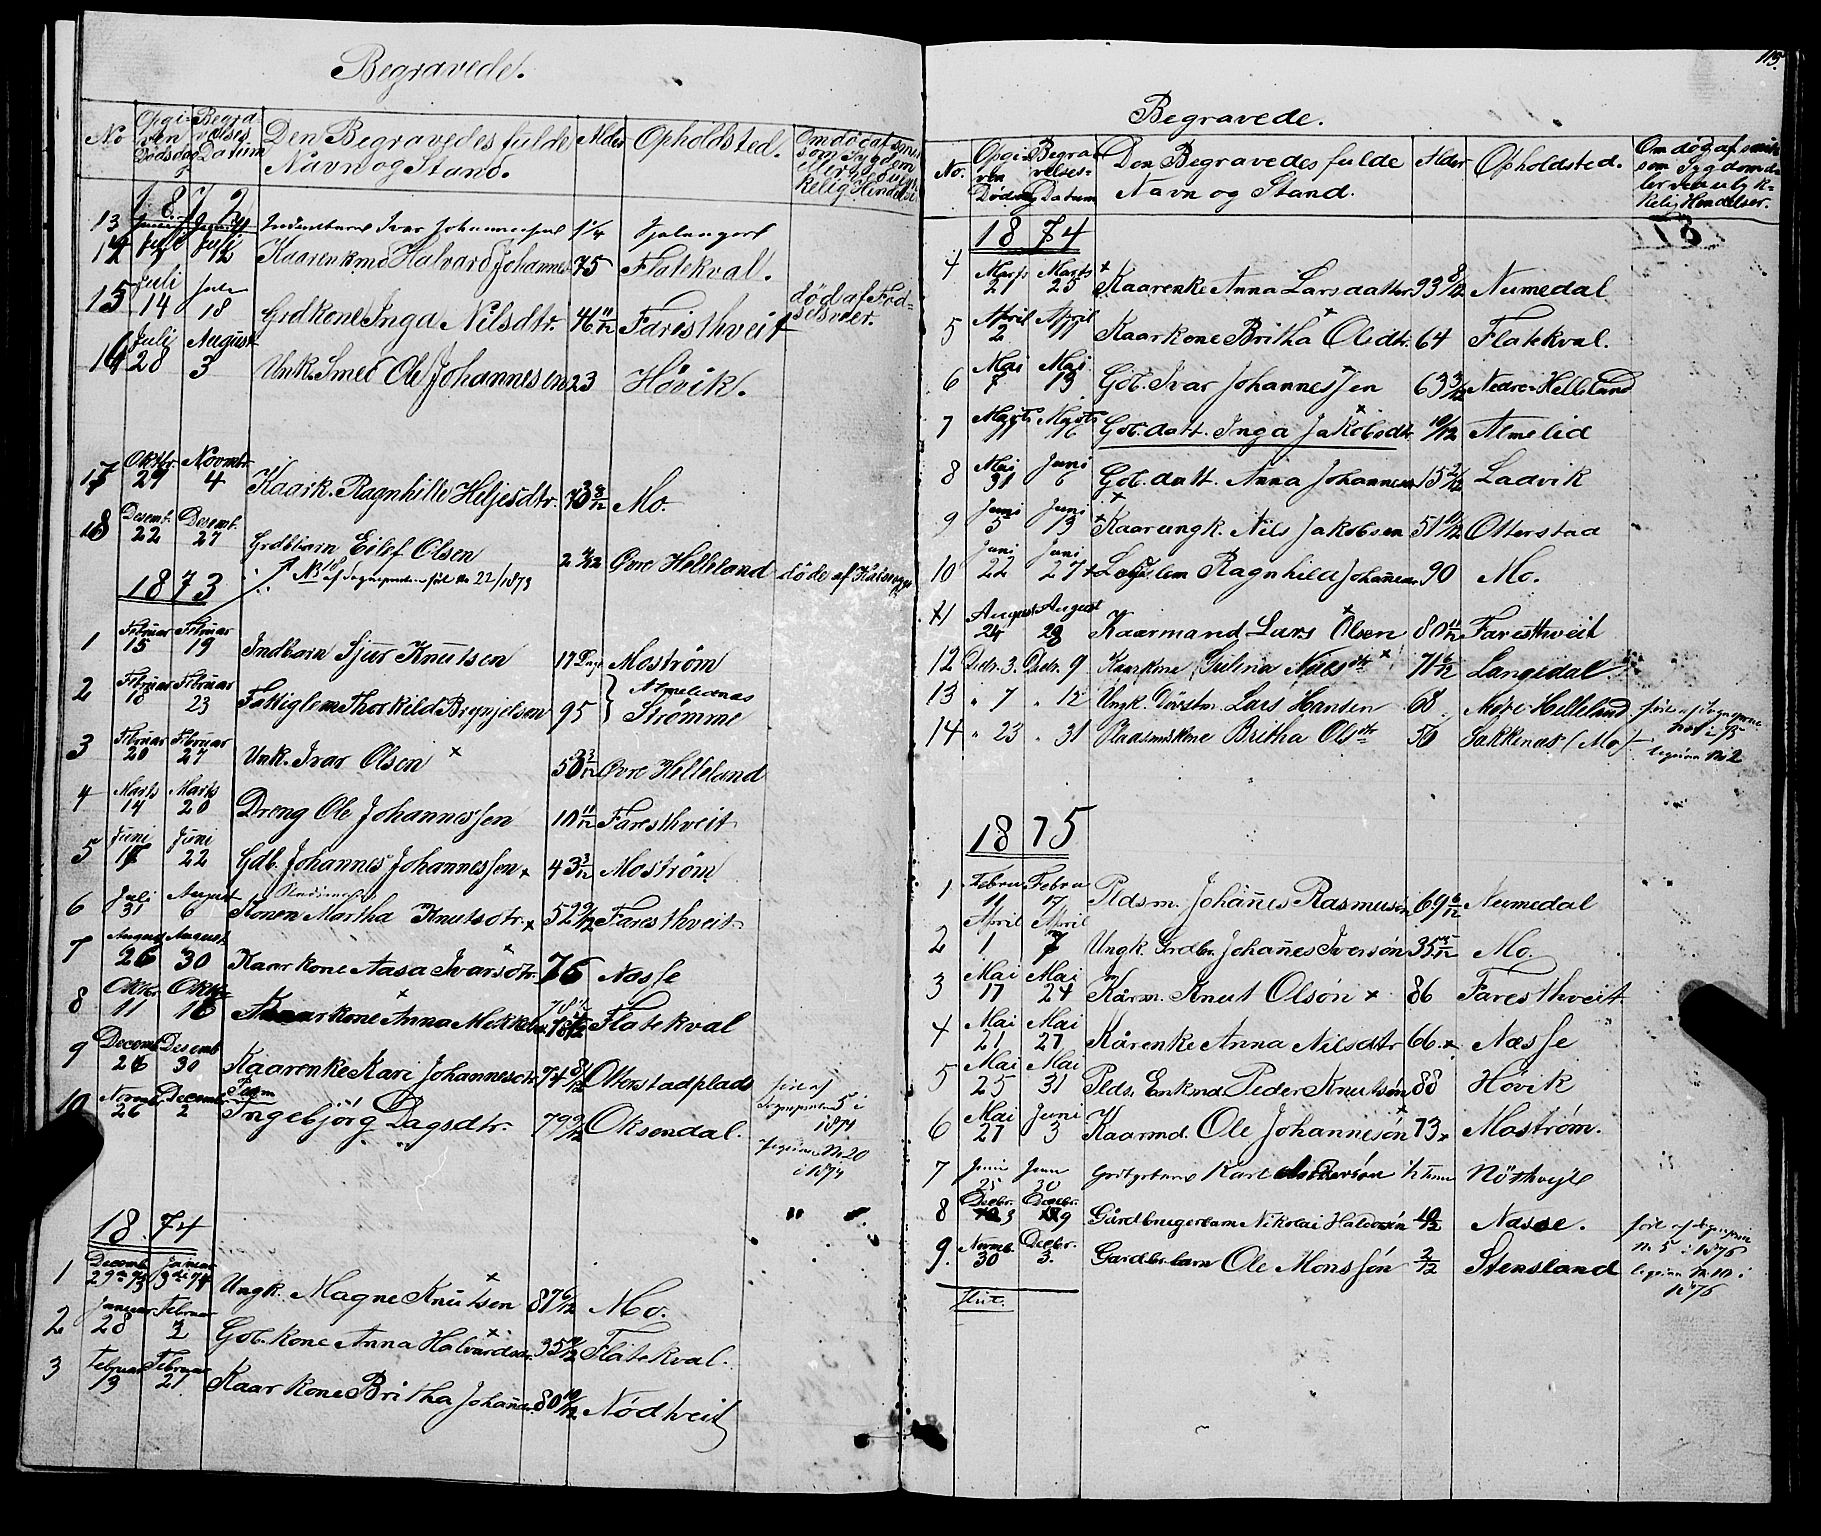 Begravede.
No Opgiven Dødsdag Begravelses Datum Den Begravedes fulde Navn og Stand. Alder Opholdsted. Om død af smitsom Sygdom
1872
13 1/4
14 Juli 7 Juli 12 Kaarenkmd Halvard Johannes 75 Flatekval.
15 Juli 14 Juli 18 Grdkone Inga Nilsdtr. 46 11/12 Faristhveit død af Fødselsveer.
16 Juli 28 August 3 Unk. Smed Ole Johannesen 23 Høvik.
17 Oktbr. 29 Novmbr. 4 Kaark. Ragnhille Heljesdtr. 73 8/12 Mo.
18 Desemb. 22 Desemb. 27 Grdbbarn Eilef Olsen 2 Øvre Helleland døde af
22/1873
1873
1 Februar 15 Februar 19 Indbarn Sjur Knutsen 17 Dage Moström
2 Februar 18 Februar 23 Fattiglem Thorkild Brynjelsen 95 Almelidnæs Strömme
3 Februar 20 Februar 27 Unk. Ivar Olsen × 50 3/12 Øvre Helleland
4 Marts 14 Marts 20 Dreng Ole Johannessen 10 11/12 Faresthveit
5 Juni 17 Juni 22 Gdb. Johannes Johannessen × 43 3/12 Moström
6 Juli 31 August 6 Konen Martha Knutsdtr. × 52 9/12 Faresthveit
7 August 26 August 30 Kaarkone Aasa Ivarsdtr. × 76 Nasse
8 Oktbr 11 Oktbr 16 Kaarkone Anna Mikkels × Flatekval
9 Decemb 26 Desemb 30 Kaarenke Kari Johannesdtr. 74 8/12 Otterstadplads
10 Novmb 26 Decemb 2 Ingebjörg Dagsdtr. 79 9/12 Oksendal.
5 i 1874
No 20 i 1874
1874
1 Decemb 29de 73 Januar 3die 74 Ungk. Magne Knutsen × 87 6/12 Mo.
2 Januar 28 Februar 3 Gdb. kone Anna Halvardsdtr × 35 Flatekval.
3 Februar 13 Februar 27 Kaarkone Britha Johañd. 80 10/12 Nødtveit
115.
Begravede.
No. Opgiven Dødsdag Begravelses-Datum Den Begravedes fulde Navn og Stand. Alder Opholdsted. Om død af smitsom Sygdom eller ved ulykkelig Hendelser.
1874
4 Marts 21 Marts 25 × Kaarenke Anna Larsdatter 93 8/12 Numedal
5 April 2 April 11 Kaarkone Britha Olsdtr. × 64 Flatekval.
6 Mai 7 Mai 13 Gdb. Ivar Johannessen 63 3/12 Nedre-Helleland
7 Gdb. datt. Inga Jakobsdtr × 10/12 Almelid
8 Mai 31 Juni 6 Gdb. datt. Anna Johannesen 15 2/12 Ladvik
9 Juni 5 Juni 13 × Kaarungk. Nils Jakobsen 51 Otterstad
10 Juni 22 Juni 27 × Lægdslem Ragnhild Johañesd 90 Mo.
11 August 24 August 28 Kaarmand Lars Olsen × 80 11/12 Faresthveit
12 Decbr. 3. Decbr. 9 Kaarkone Gulina Nilsdtr × 71 6/12 Langedal
13 " 7 " 12 Ungk. Lars Hansen 68 Nedre-Helleland
14 " 23 " 31 Pladsmdkone Britha Olsdtr 50 Bakkenæs (Mo)
No 2
1875
1 Febru 11 Febru 17 Pldsm. Johañes Rasmusen 69 6/12 Numedal
2 April 1 April 7 Ungk. Grdbr. Johañes Iversøn 35 Mo.
3 Mai 17 Mai 24 Kårm. Knut Olsøn × 86 Faresthveit
4 Mai 21 Mai 27 Kårenke Anna Nilsdtr 66 × Næsse
5 Mai 25 Mai 31 Plds. Enkmd. Peder Knutsøn 88 Høvik
6 Mai 27 Juni 3 Kaarmd. Ole Johannesøn × 73 × Mostrøm.
7 Juni 25 Juni 30 Karl 1/2 Nöthveit
8 Decbr. 3 Decbr. 9 Gårdbrugerbarn Nikolai Haldorsøn 10/12 Nasse.
9. Novmb. 30 Decbr. 3. Gardbr. barn Ole Monssøn 2/12 Stensland
No 5 i 1876